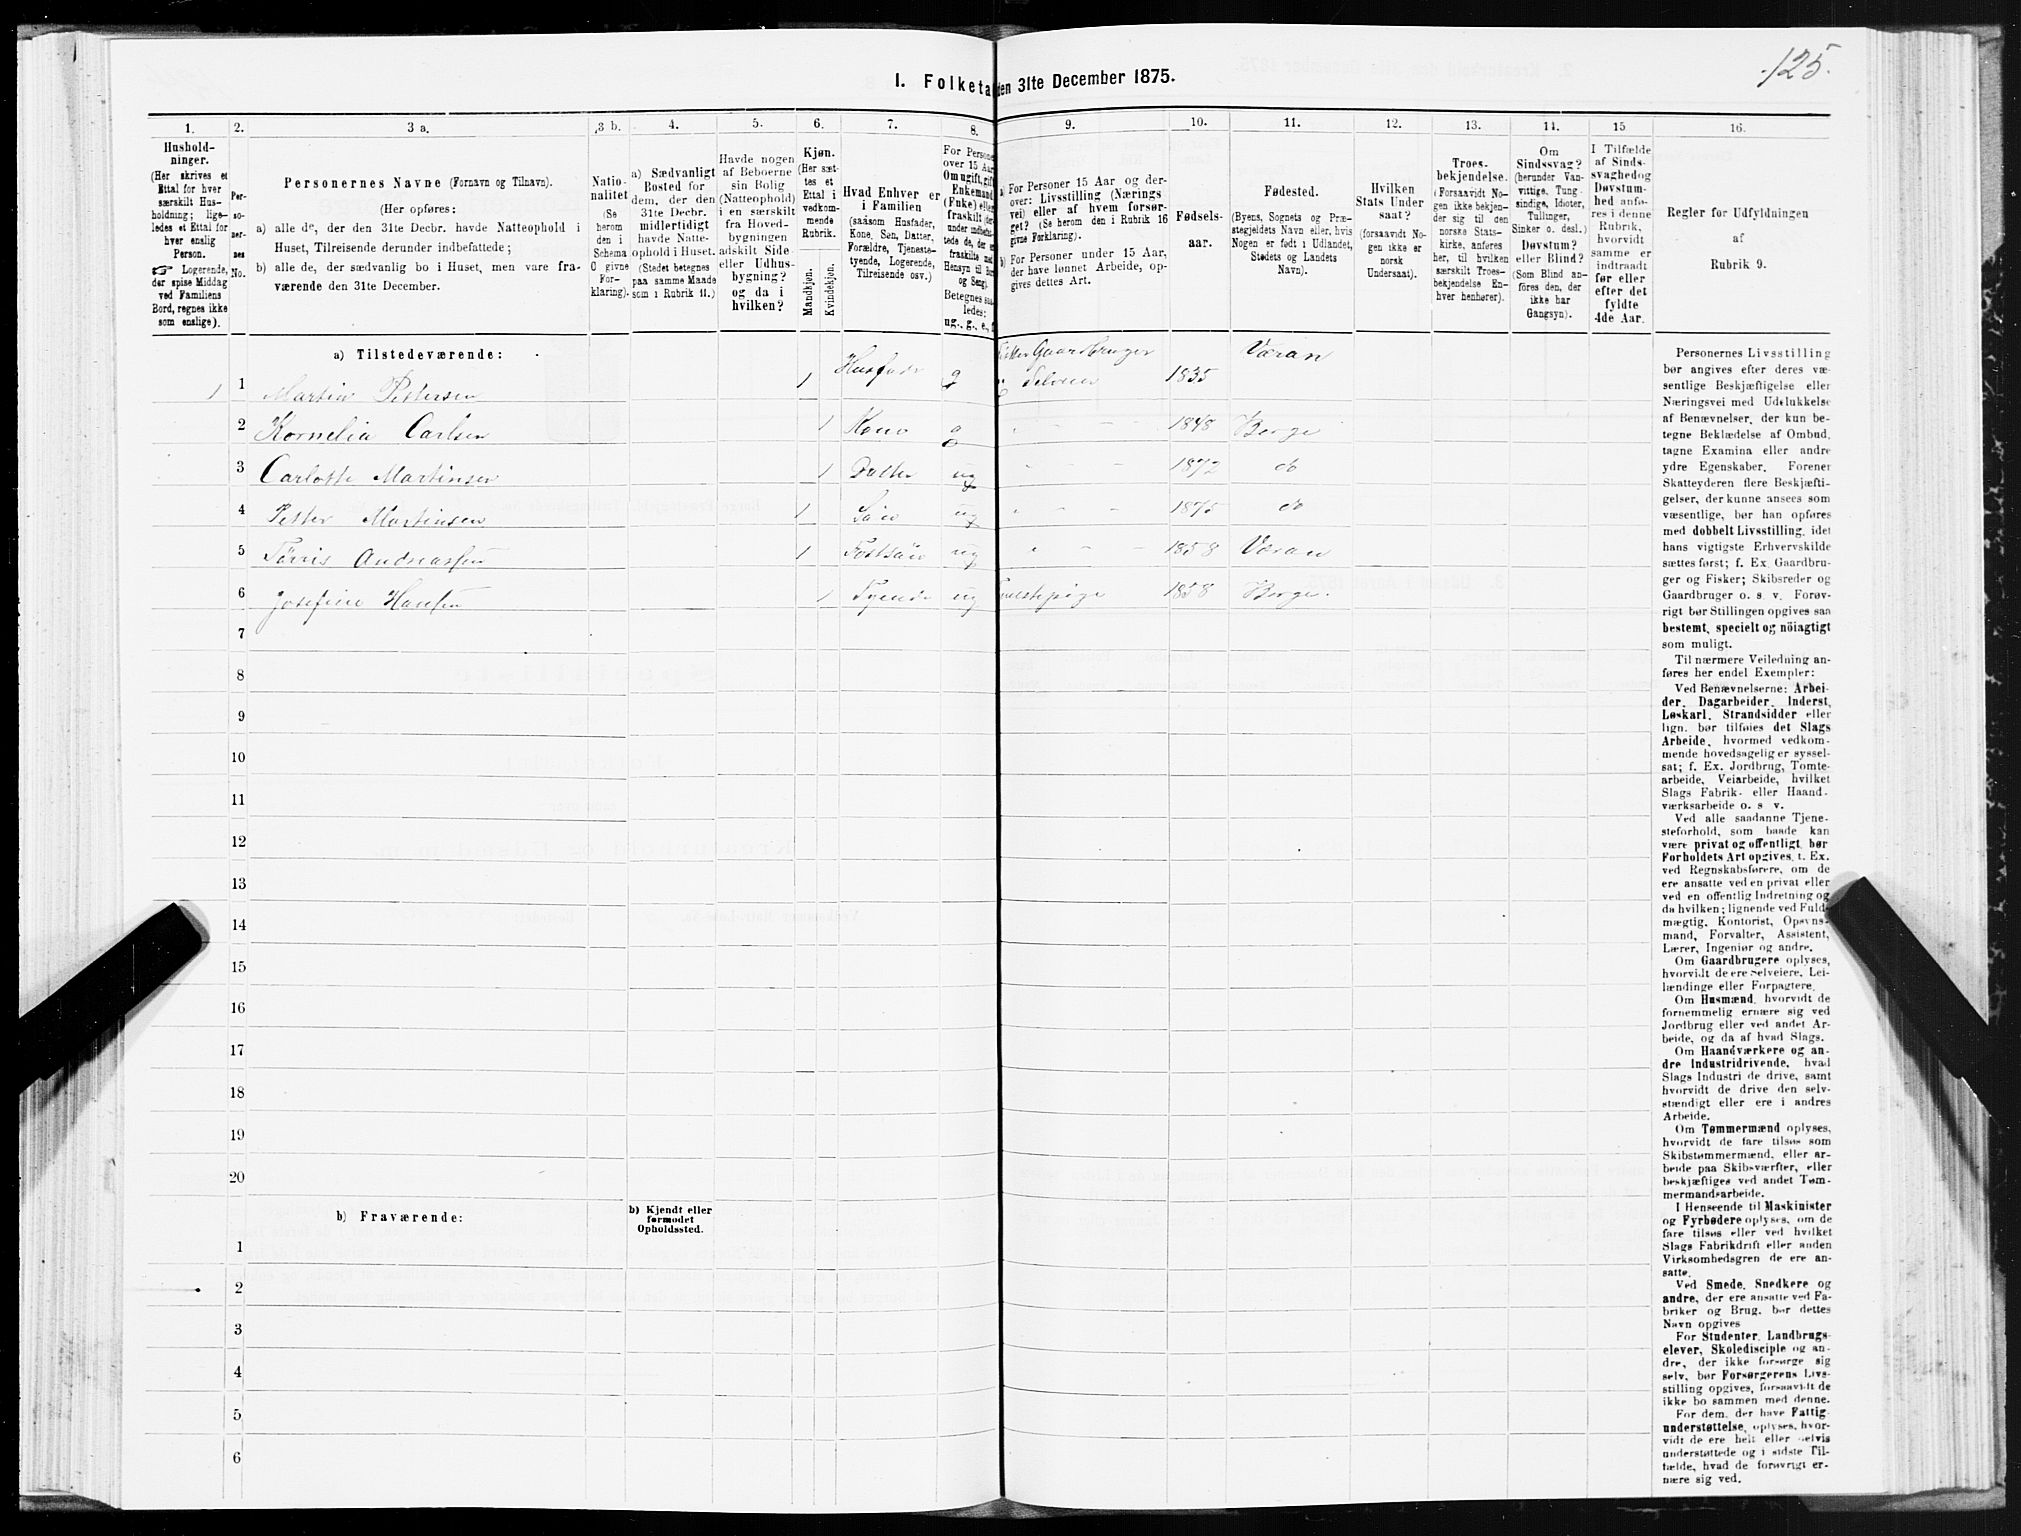 125.
I. Folketa den 31te December 1875.
1. 2. 3 a. 3 b. 4. 5. 6. 7. 8. 9. 10. 11. 12. 13. 14. 15 16.
Hushold-
ninger.
(Her skrives et
Ettal for hver
særskilt Hus-
holdning; lige-
ledes et Ettal for
hver enslig
Person.
☞ Logerende,
der spise Middag
ved Familiens
Bord, regnes ikke
som enslige).
Per-
so-
ner-
nes
No.
Personernes Navne (Fornavn og Tilnavn).
(Her opføres:
a) alle de, der den 31te Decbr. havde Natteophold i
Huset, Tilreisende derunder indbefattede;
b) alle de, der sædvanlig bo i Huset, men vare fra-
værende den 31te December.
Natio-
nalitet
(Se
herom
den i
Schema
O givne
For-
klaring).
a) Sædvanligt
Bosted for
dem, der den
31te Decbr.
midlertidigt
havde Natte-
ophold i Huset.
(Stedet betegnes
paa samme Maade
som i Rubrik 11.)
Havde nogen
af Beboerne
sin Bolig
(Natteophold)
i en særskilt
fra Hoved-
bygningen
adskilt Side-
eller Udhus-
bygning?
og da i
hvilken?
Kjøn.
(Her sæt-
tes et
Ettal i
vedkom-
mende
Rubrik.
Mandkjøn.
Kvindekjøn.
Hvad Enhver er
i Familien
(saasom Husfader,
Kone, Søn, Datter,
Forældre, Tjeneste-
tyende, Logerende,
Tilreisende osv.)
For Persone
over 15 Aar
Om ugift, gift
Enkemand
(Enke) eller
fraskilt
Betegnes saa-
ledes:
ug., g., e., f.
a) For Personer 15 Aar og der-
over: Livsstilling (Nærings
vei) eller af hvem forsør-
get? (Se herom den i Rubrik 16
givne Forklaring).
b) For Personer under 15 Aar,
der have lønnet Arbeide, op-
gives dettes Art.
Fødsels-
aar.
Fødested.
(Byens, Sognets og Præ-
stegjeldets Navn eller, hvis
Nogen er født i Udlandet,
Stedets og Landets
Navn).
Hvilken
Stats Under
saat?
(forsaavidt No-
gen ikke er
norsk
Undersaat).
Troes-
bekjendelse.
(Forsaavidt No-
gen ikke bekjen-
der sig til den
norske Stats-
kirke, anføres
her, til hvilken
særskilt Troes-
bekjendelse En-
hver henhører).
Om
Sindssvag?
(herunder Van-
vittige, Tung-
sindige, Idioter,
Tullinger,
Sinker o. desl.)
Døvstum?
eller Blind?
(Som Blind an-
føres den, der
ikke har
Gangsyn).
I Tilfælde
af Sinds-
svaghed og
Døvstum-
hed anfø-
res i denne
Rubrik,
hvorvidt
samme er
indtraadt
før eller
efter det
fyldte
4de Aar.
Regler for Udfyldningen
af
Rubrik 9.
a) Tilstedeværende:
1 1 Martin Pettersen 1 Husfader g Gaardbruger Selveier 1835 Væran
2 Kornelia Carlsen 1 Kone g 1848 Borge
3 Carlotte Martinsen 1 Datter ug 1872 do
4 Petter Martinsen 1 Søn ug 1875 do
5 Andreassen 1 ug 1858 Væran
6 Josefine Hansen 1 Tyende ug 1858 Borge.
7
8
9
10
11
12
13
14
15
16
17
18
19
20
b) Fraværende:
b) Kjendt eller
formodet
Opholdssted.
1
2
3
4
5
6
Personernes Livsstilling
bør angives efter deres væ-
sentlige Beskjæftigelse eller
Næringsvei med Udelukkelse
af Benævnelser, der kun be-
tegne Beklædelse af Ombud,
tagne Examina eller andre
ydre Egenskaber. Forener
Skatteyderen flere Beskjæfti-
gelser, der kunne ansees som
væsentlige, bør han opføres
med dobbelt Livsstilling, idet
hans vigtigste Erhvervskilde
sættes først; f. Ex. Gaardbru-
ger og Fisker; Skibsreder og
Gaardbruger o. s. v. Forøv-
rigt bør Stillingen opgives saa
bestemt, specielt og nöiagtigt
som muligt.
Til nærmere Veiledning an-
føres her endel Exempler:
Ved Benævnelserne: Arbei-
der, Dagarbeider, Inderst,
Løskarl, Strandsidder eller
lign. bør tilføies det Slags
Arbeide, hvormed vedkom-
mende hovedsagelig er syssel-
sat; f. Ex. Jordbrug, Tomte-
arbeide, Veiarbeide, hvilket
Slags Fabrik- eller Haand-
værksarbeide o. s. v.
Ved alle saadanne Tjene-
steforhold, som baade kan
være privat og offentligt, bør
Forholdets Art opgives, t. Ex.
ved Regnskabsførere, om de
ere ansatte ved en privat eller
ved en offentlig Indretning og
da hvilken; lignende ved Fuld-
mægtig, Kontorist, Opsyns-
mand, Forvalter, Assistent,
Lærer, Ingeniør og andre.
Om Gaardbrugere oplyses,
hvorvidt de ere Selveiere, Lei-
lændinge eller Forpagtere.
Om Husmænd, hvorvidt de
fornemmelig ernære sig ved
Jordbrug eller ved andet Ar-
beide, og da af hvad Slags.
Om Haandværkere og an-
dre Industridrivende, hvad
Slags Industri de drive, samt
hvorvidt de drive den selv-
stændigt eller ere i andres
Arbeide.
Om Tømmermænd oplyses,
hvorvidt de fare tilsøs som
Skibstømmermænd, eller ar-
beide paa Skibsværfter, eller
beskjæftiges ved andet Tøm-
mermandsarbeide.
I Henseende til Maskinister
og Fyrbødere oplyses, om de
fare tilsøs eller ved hvilket
Slags Fabrikdrift eller anden
Virksomhedsgren de ere an-
satte.
Ved Smede, Snedkere og
andre, der ere ansatte ved Fa-
briker og Brug, bør dettes
Navn opgives
For Studenter, Landbrugs-
elever, Skoledisciple og an-
dre, der ikke forsørge sig
selv, bør Forsørgerens Livs-
stilling opgives, forsaavidt de
ikke bo sammen med denne.
For dem, der have Fattig-
understøttelse, oplyses, hvor-
vidt de ere helt eller delvis
understøttede og i sidste Til-
fælde, hvad de forøvrigt er-
nære sig ved.